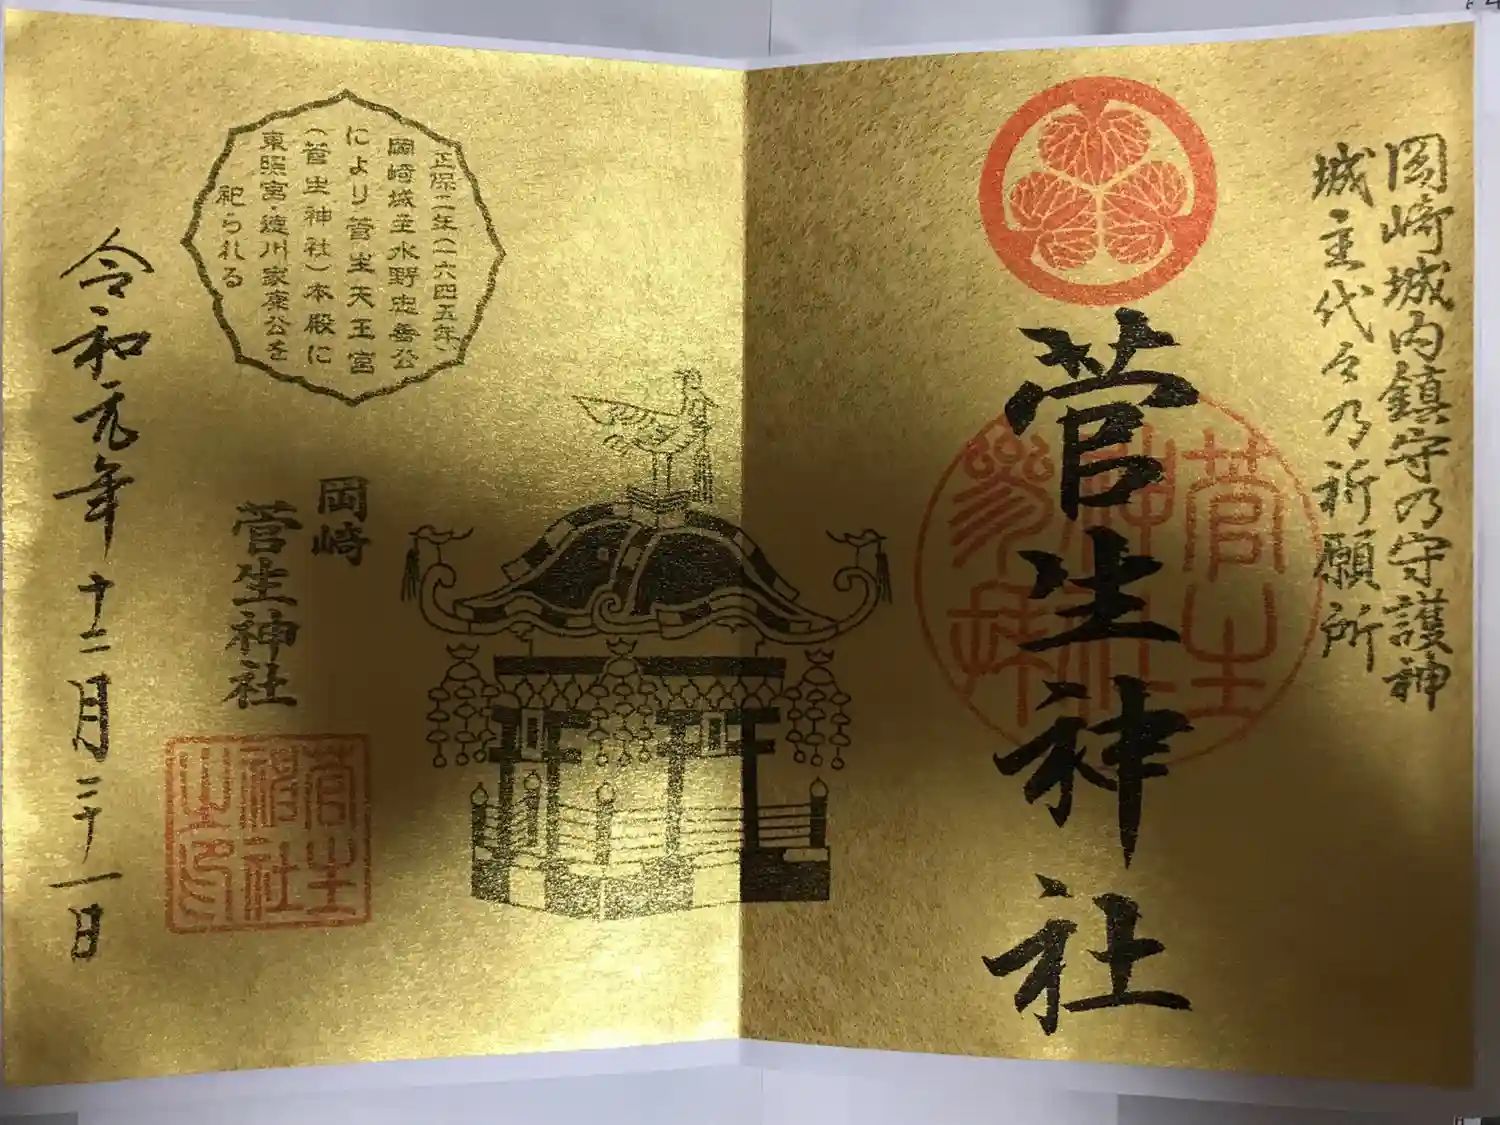 岡崎城内鎮守の守護神
城主代々乃祈願所
菅生神社
菅生
神社
参拝
正保二年(一六四五年)、
岡崎城主水野忠善公
により菅生天王宮
(菅生神社)本殿に
東照宮・徳川家康公を
祀られる
岡崎
菅生神社
菅生
神社
之印
令和元年十二月三十一日